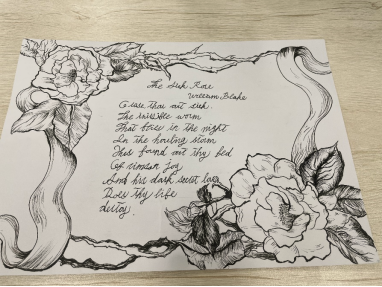 The Sick Rose
William Blake
O rose thou art sick.
The invisible worm
That flies in the night
In the howling storm
Has found out thy bed
Of crimson joy
And his dark secret love
Does thy life
destroy.